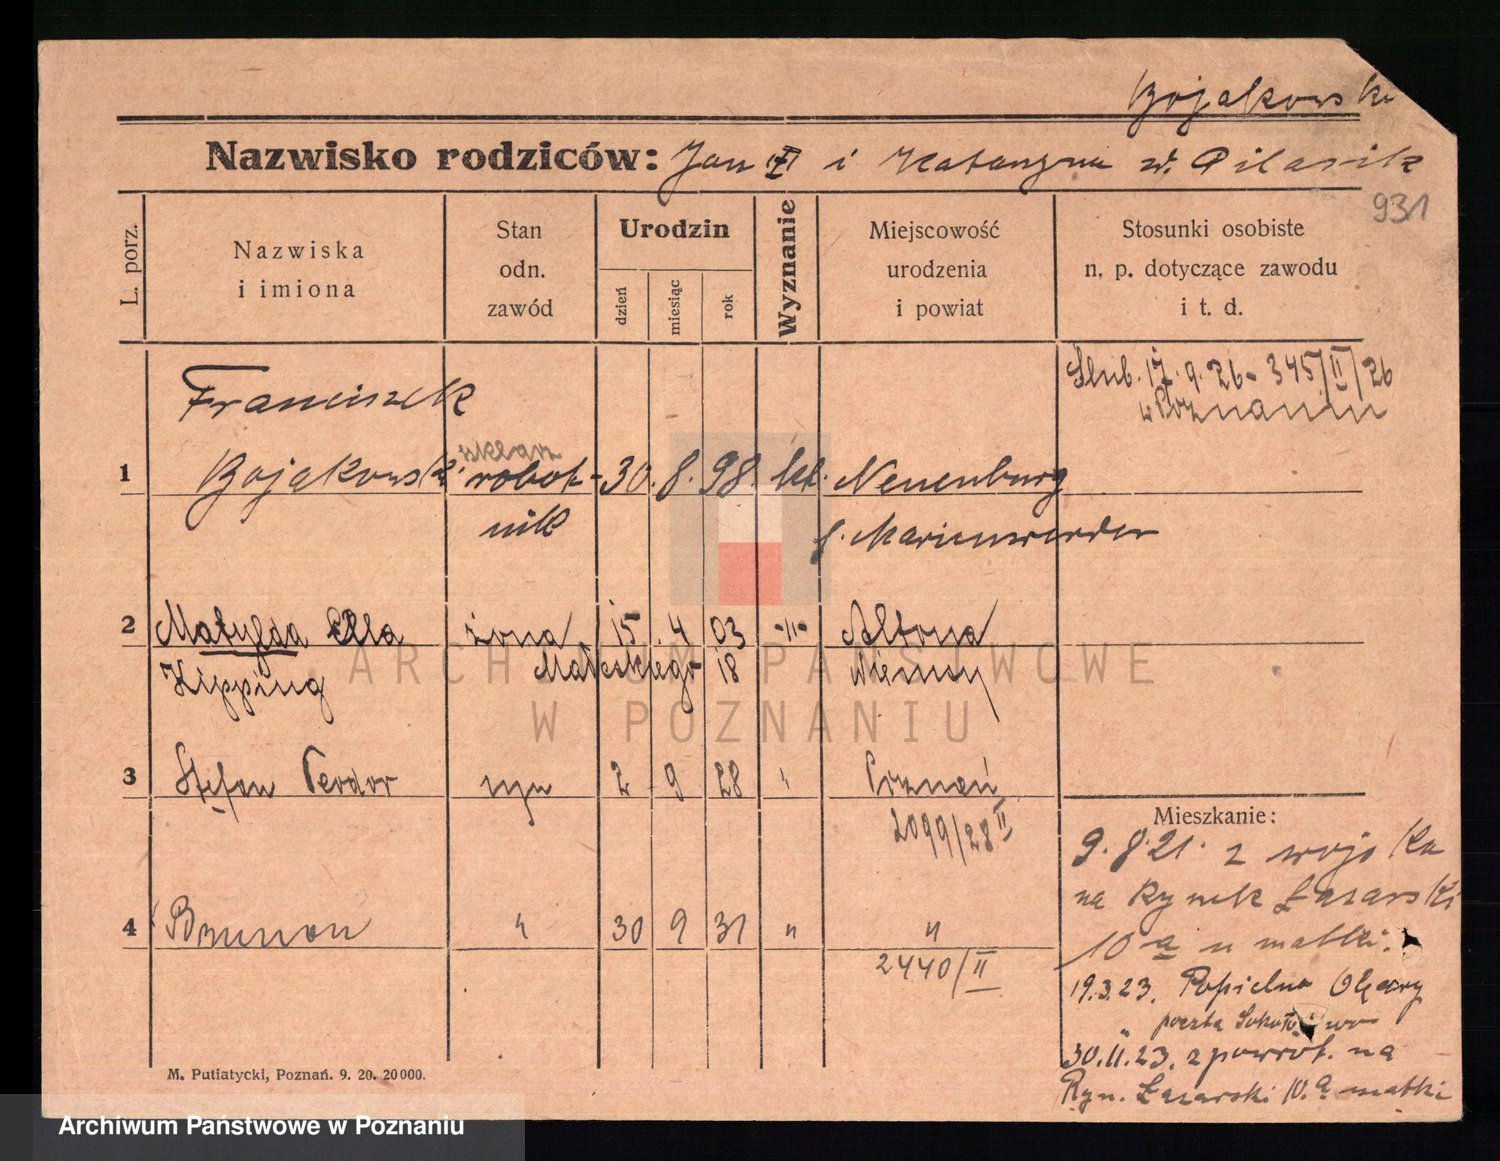 Bojakowski
Nazwisko rodziców: Jan i Katarzyna
931
L. porz.
Nazwiska
i imiona
Stan
odn.
zawód
Urodzin
dzień
miesiąc
rok
Wyznanie
Miejscowość
urodzenia
i powiat
Stosunki osobiste
n. p. dotyczące zawodu
i t. d.
Ślub. 17. 9. 26 - 345/II/26
w Poznaniu
Franciszek
1 Bojakowski robot- 30. 8. 98. kt. Neuenburg
nik Marienwerder
2 Matylda Ella żona 15 4 03 -"- Altona
Kipping 18 Niemcy
3 Stefan Teodor syn 2 9 28 " Poznań
2099/28 II
4 Brunon " 30 9 31 " "
2440/II
Mieszkanie:
9. 8. 21. z wojska
na Rynek Łazarski
10 a u matki.
19.3.23. Popielno Olęary
poczta
30.11.23. z powrot. na
Ryn. Łazarski 10 a matki
M. Putiatycki, Poznań. 9. 20. 20000.
ARCHIWUM PAŃSTWOWE
W POZNANIU
Archiwum Państwowe w Poznaniu